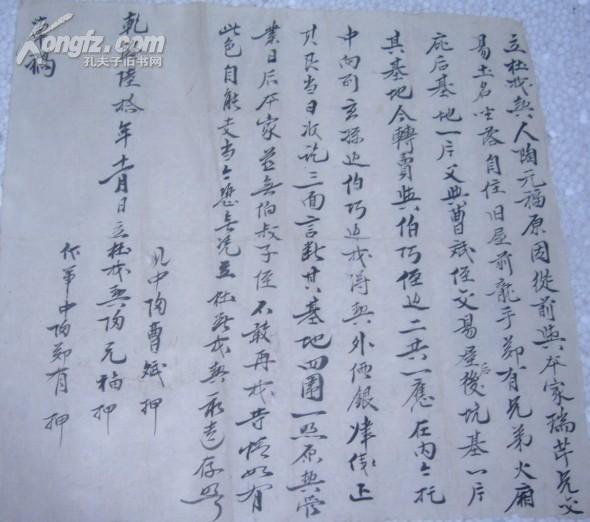 立杜找契人陶元福原因從前與本家瑞芹兄父
易土名坐落自住旧屋前龍手節有兄弟火廂
庇后基地一片父與曹斌侄父易產後坑基一片
后
其基地今轉賣與伯巧侄边二共一應在内今托
中向到玄孫边伯巧边找得契外價銀 正
其艮当日收訖三面言断其基地四圍一照原契管
業日后本家並無伯叔子侄不敢再找等情如有
此色自能支当今恐無凭立杜 找契永遠存照
乾隆陸拾年十一月日立杜找契陶元福押
見中陶曹斌押
作筆中陶節有押
kongfz.com
孔夫子旧书网